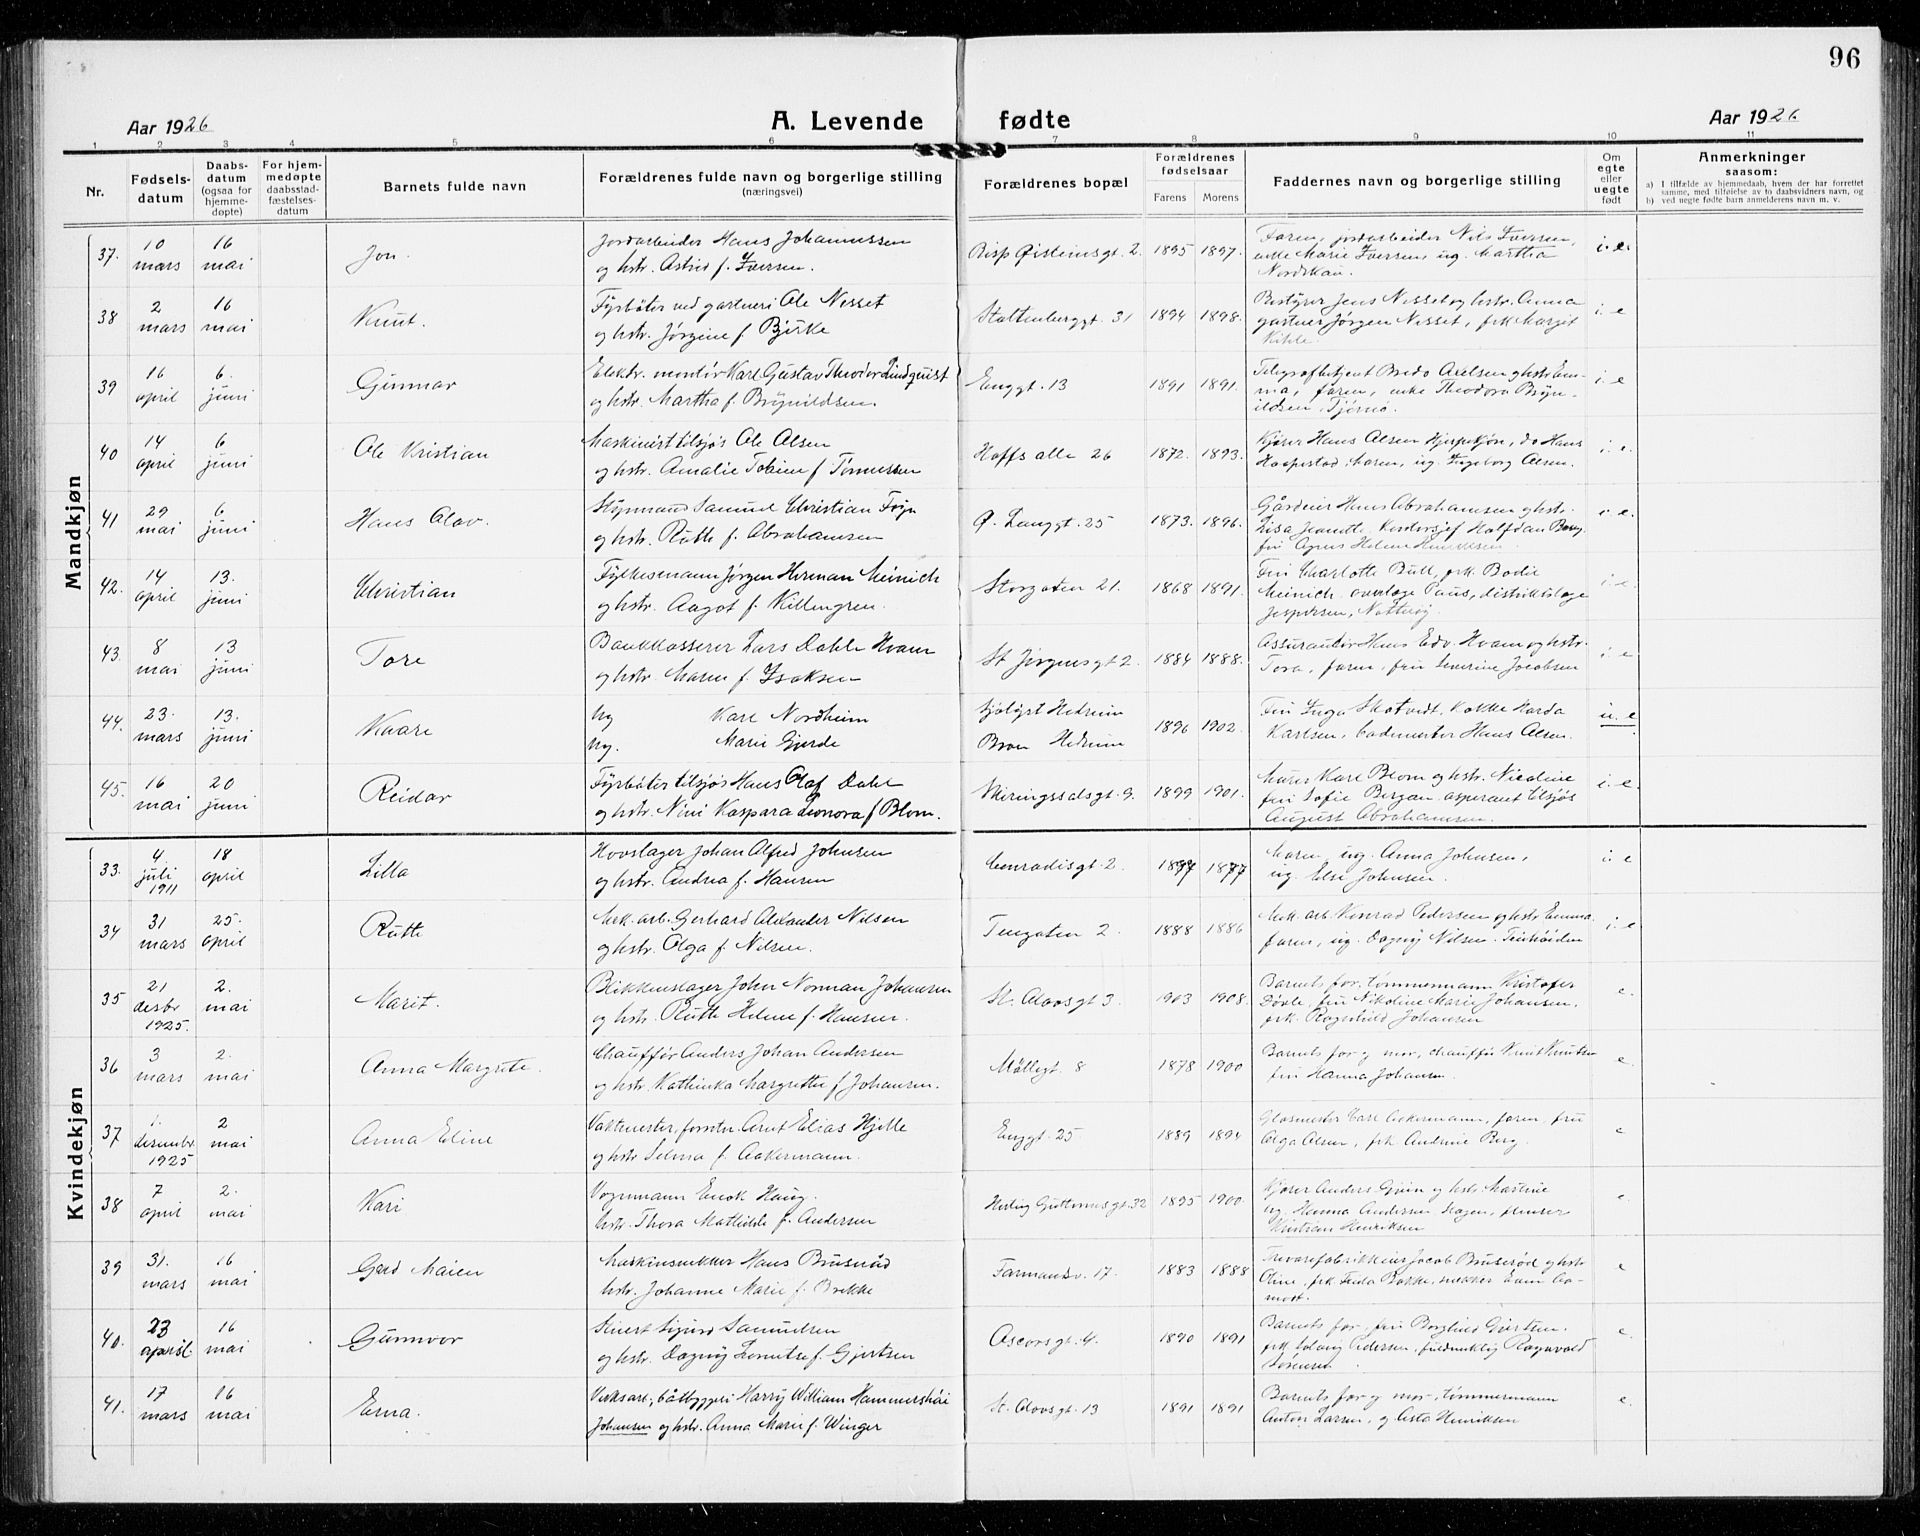 96
Aar 1926
A. Levende fødte
Aar 1926
1 2 3 4 5 6 7 8 9 10 11
Nr.
Fødsels-
datum
Daabs-
datum
(ogsaa for
hjemme-
døpte)
For hjem-
medøpte
daabsstad-
fæstelses-
datum
Barnets fulde navn
Forældrenes fulde navn og borgerlige stilling
(næringsvei)
Forældrenes bopæl
Forældrenes
fødselsaar
Farens Morens
Faddernes navn og borgerlige stilling
Om
egte
eller
uegte
født
Anmerkninger
saasom:
a) I tilfælde av hjemmedaab, hvem der har forrettet
samme, med tilføielse av to daabsvidners navn, og
b) ved uegte fødte barn anmelderens navn m. v.
Mandkjøn
37. 10 mars 16 mai Jon.
Jordarbeider Hans Johannessen
og hstr. Astrid f. Iversen.
Bisp Øisteinsgt. 2. 1895 1897.
Faren, jordarbeider Nils Iversen,
enke Marie Iversen, ug. Martha
Nordskau.
i. e.
38 2 mars 16 mai Knut.
Fyrbøter ved gartneri Ole Nesset
og hstr. Jørgine f. Bjerke
Stoltenberggt. 31 1894 1898.
Bestyrer Jens Nesset og hstr. Anna
gartner Jørgen Nesset, frk Margit
i. e
39 16 april 6. juni Gunnar
Elektr. montør Karl Gustav Theodor Lindquist
og hstr. Martha f. Brynildsen.
Enggt. 13 1891 1891.
Telegrafbetjent Bredo Axelsen og hstr. Em-
ma, faren, enke Theodora Bryn-
ildsen, Tjømø.
i. e
40 14 april 6 juni Ole Kristian
Maskinist tilsjøs Ole Olsen
og hstr. Amalie Tobine f Tønnessen
Hoffs alle 26 1872. 1893.
Kjører Hans Olsen do Hans
moren, ug. Ingeborg Olsen.
i. e.
41 29 mai 6 juni Hans Olav.
Styrmand Samuel Christian Føyn
og hstr. Ruth f. Abrahamsen
Ø. Langgt. 25 1873. 1896.
Gårdeier Hans Abrahamsen og hstr.
Lisa Halfdan Berg,
fru Agnes Helene
i. e.
42. 14 april 13. juni Christian
Fylkesmann Jørgen Herman Meinich
og hstr. Aagot f. Killengren.
Storgaten 21. 1868 1891.
Fru Charlotte Bull, frk. Bodil
Meinich. overlæge Paus, distriktslæge
Jespersen, Nøtterøy
i. e
43. 8 mai 13 juni Tore
Bankkasserer Lars Dahle Hvam
og hstr Maren f. Isaksen
St Jørgensgt 2. 1884 1888.
Assurandør Hans Edv. Hvam og hstr.
Tora, faren, fru Severine Jacobsen
i. e
44. 23. mars 13. juni Kaare
Ug Karl Nordheim
Ug. Marie Gjerde
Sjølyst Hedrum
Broen Hedrum
1896 1902.
Fru Inga Skotvedt, kokke Harda
Karlsen, bademester Hans Olsen.
u. e
45. 16 mai 20 juni Reidar
Fyrbøter tilsjøs Hans Olaf Dahl
og hstr. Nini Kaspara Leonora f Blom.
Meringssalsgt. 9. 1899 1901.
Murer Karl Blom og hstr. Nicoline
fru Sofie Bergan, aspirant tilsjøs
August Abrahamsen.
i. e
Kvindekjøn
33. 4. juli 1911 18 april Lilla
Hovslager Johan Alfred Johnsen
og hstr. Andrea f. Hansen
Conradisgt. 2. 1877 1877
Moren, ug. Anna Johnsen,
ug. Else Johnsen.
i. e
34 31 mars 25. april Ruth
Verk. arb. Gerhard Alexander Nilsen
og hstr. Olga f. Nilsen.
Teugaten 2. 1888 1886
Verk. arb. Konrad Pedersen og hstr Emma.
faren, ug. Dagny Nilsen. Teiehøiden
i. e
35 21 desbr 1925. 2. mai Marit.
Blikkenslager John Norman Johansen
og hstr. Ruth Helene f. Hansen.
St. Olavsgt 3. 1903 1908.
Barnets far, tømmermann Kristofer
Døvle, fru Nikoline Marie Johansen.
frk. Ragnhild Johansen
e.
36 3 mars 2. mai Anna Margrete.
Chauffør Anders Johan Andersen
og hstr. Kathinka Margrethe f Johansen.
Møllegt. 8 1878 1900
Barnets far og mor, chauffør Knut Knutsen
fru Hanna Johansen
e.
37 1. desembr. 1925 2 mai Anna Eline
Vaktmester, forstr. Arnt Elias Hjelle
og hstr Selma f. Aakermann.
Enggt. 25. 1889 1894
Glasmester Carl Aakermann, faren, fru
Olga Olsen, frk Andrine Berg.
e
38 7 april 2. mai Kari
Vognmann Enok Haug.
hstr. Thora Mathilde f. Andersen
Hertug Guttormsgt. 32 1895 1900.
Kjører Anders Gjøin og hstr. Martine
ug. Hanna Andersen Hagen,
Kristian Henriksen
e.
39 31. mars 16 mai Gerd Maien
Maskinsnekker Hans Brusrød
hstr. Johanne Marie f. Brekke
Farmandsv. 17. 1883 1888
Trevarefabrikkeier Jacob Bruserød og hstr
Oline, frk Frida Bakke, snekker Einar Aa-
modt.
e
40. 23 april 16 mai Gunnvor
Stuert Sigurd Samuelsen
og hstr. Dagny f. Gjertsen
Oscarsgt. 4. 1890 1891
Barnets far, fru Borghild Gjertsen.
frk. Solveig Pedersen, fuldmektig Ragnvald
Sørensen
e.
41. 17 mars 16 mai Erna.
Verksarb., båtbyggeri Harry William Hammershøi
Johansen og hstr. Anna Marie f. Winger
St. Olavsgt. 13 1891 1891
Barnets far og mor, tømmermann
Anton Larsen, og Asta Henriksen
e.